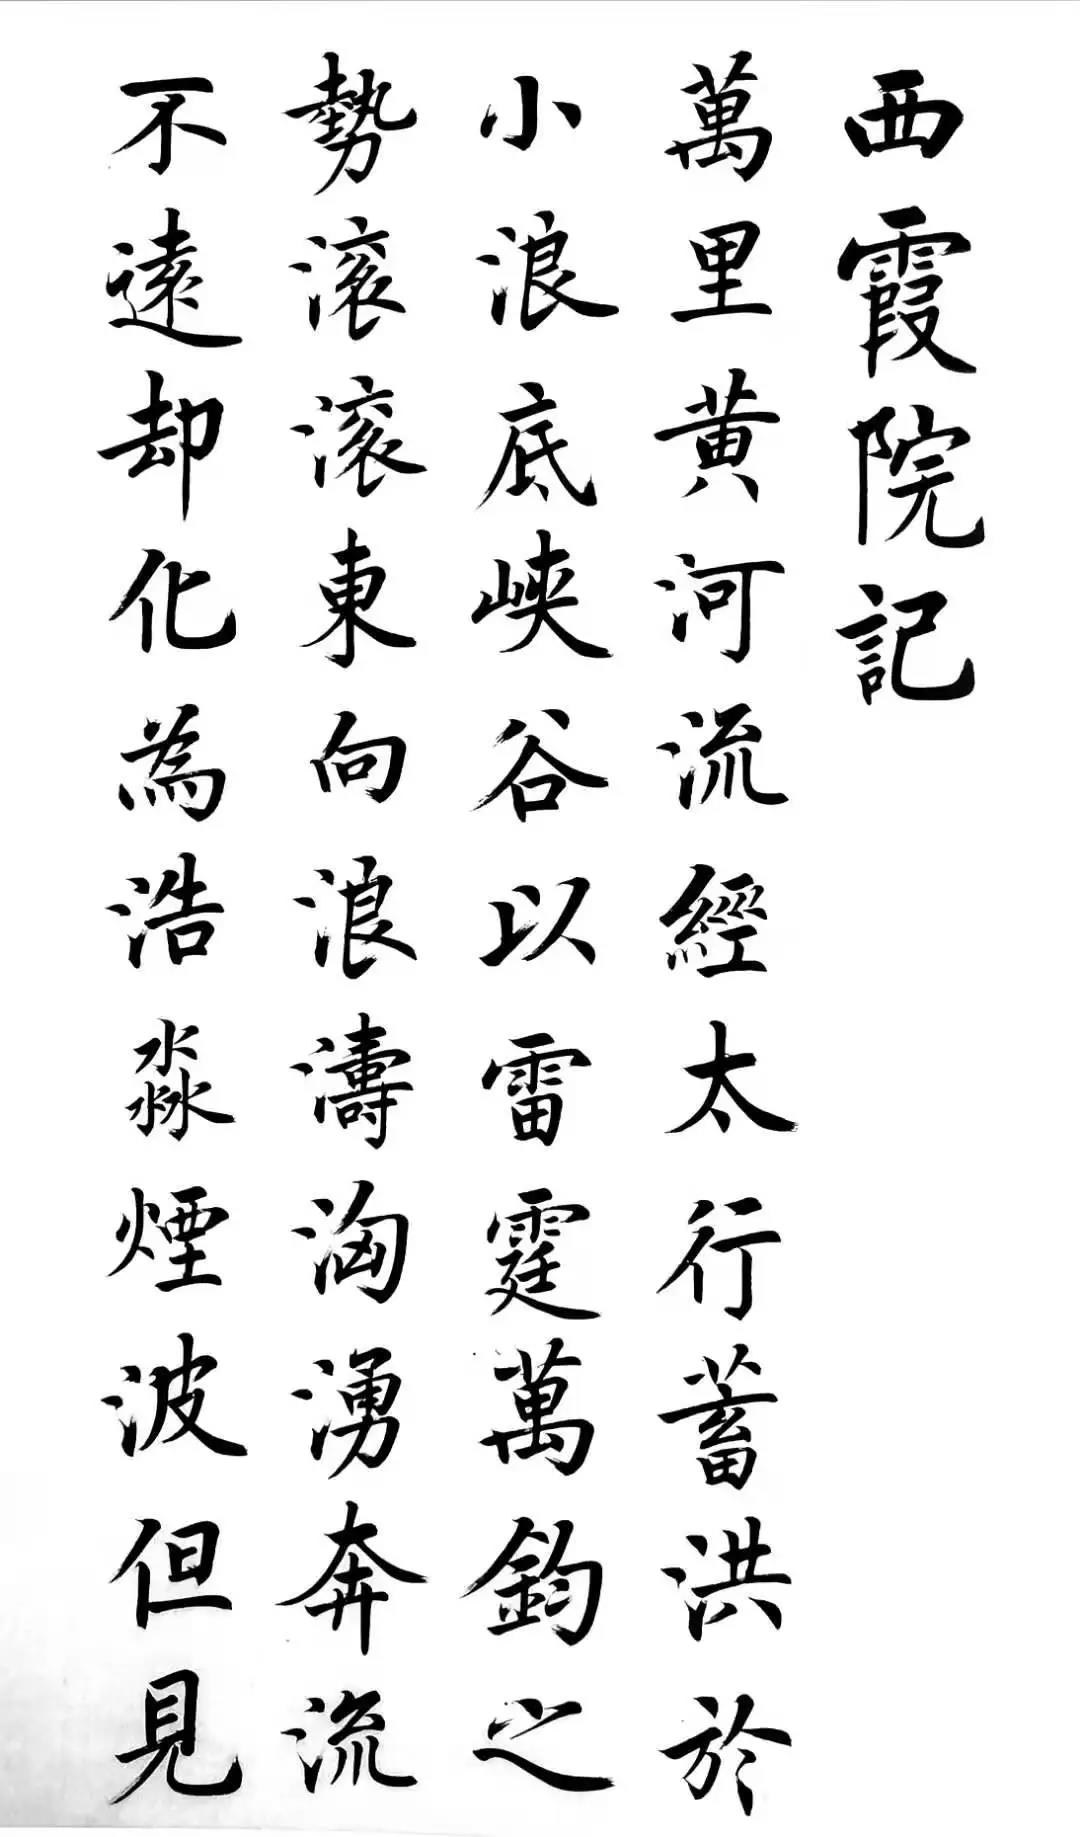 西霞院記
萬里黄河流經太行蓄洪於
小浪底峽谷以雷霆萬鈞之
勢滚滚東向浪濤洶湧奔流
不遠却化為浩淼煙波但見